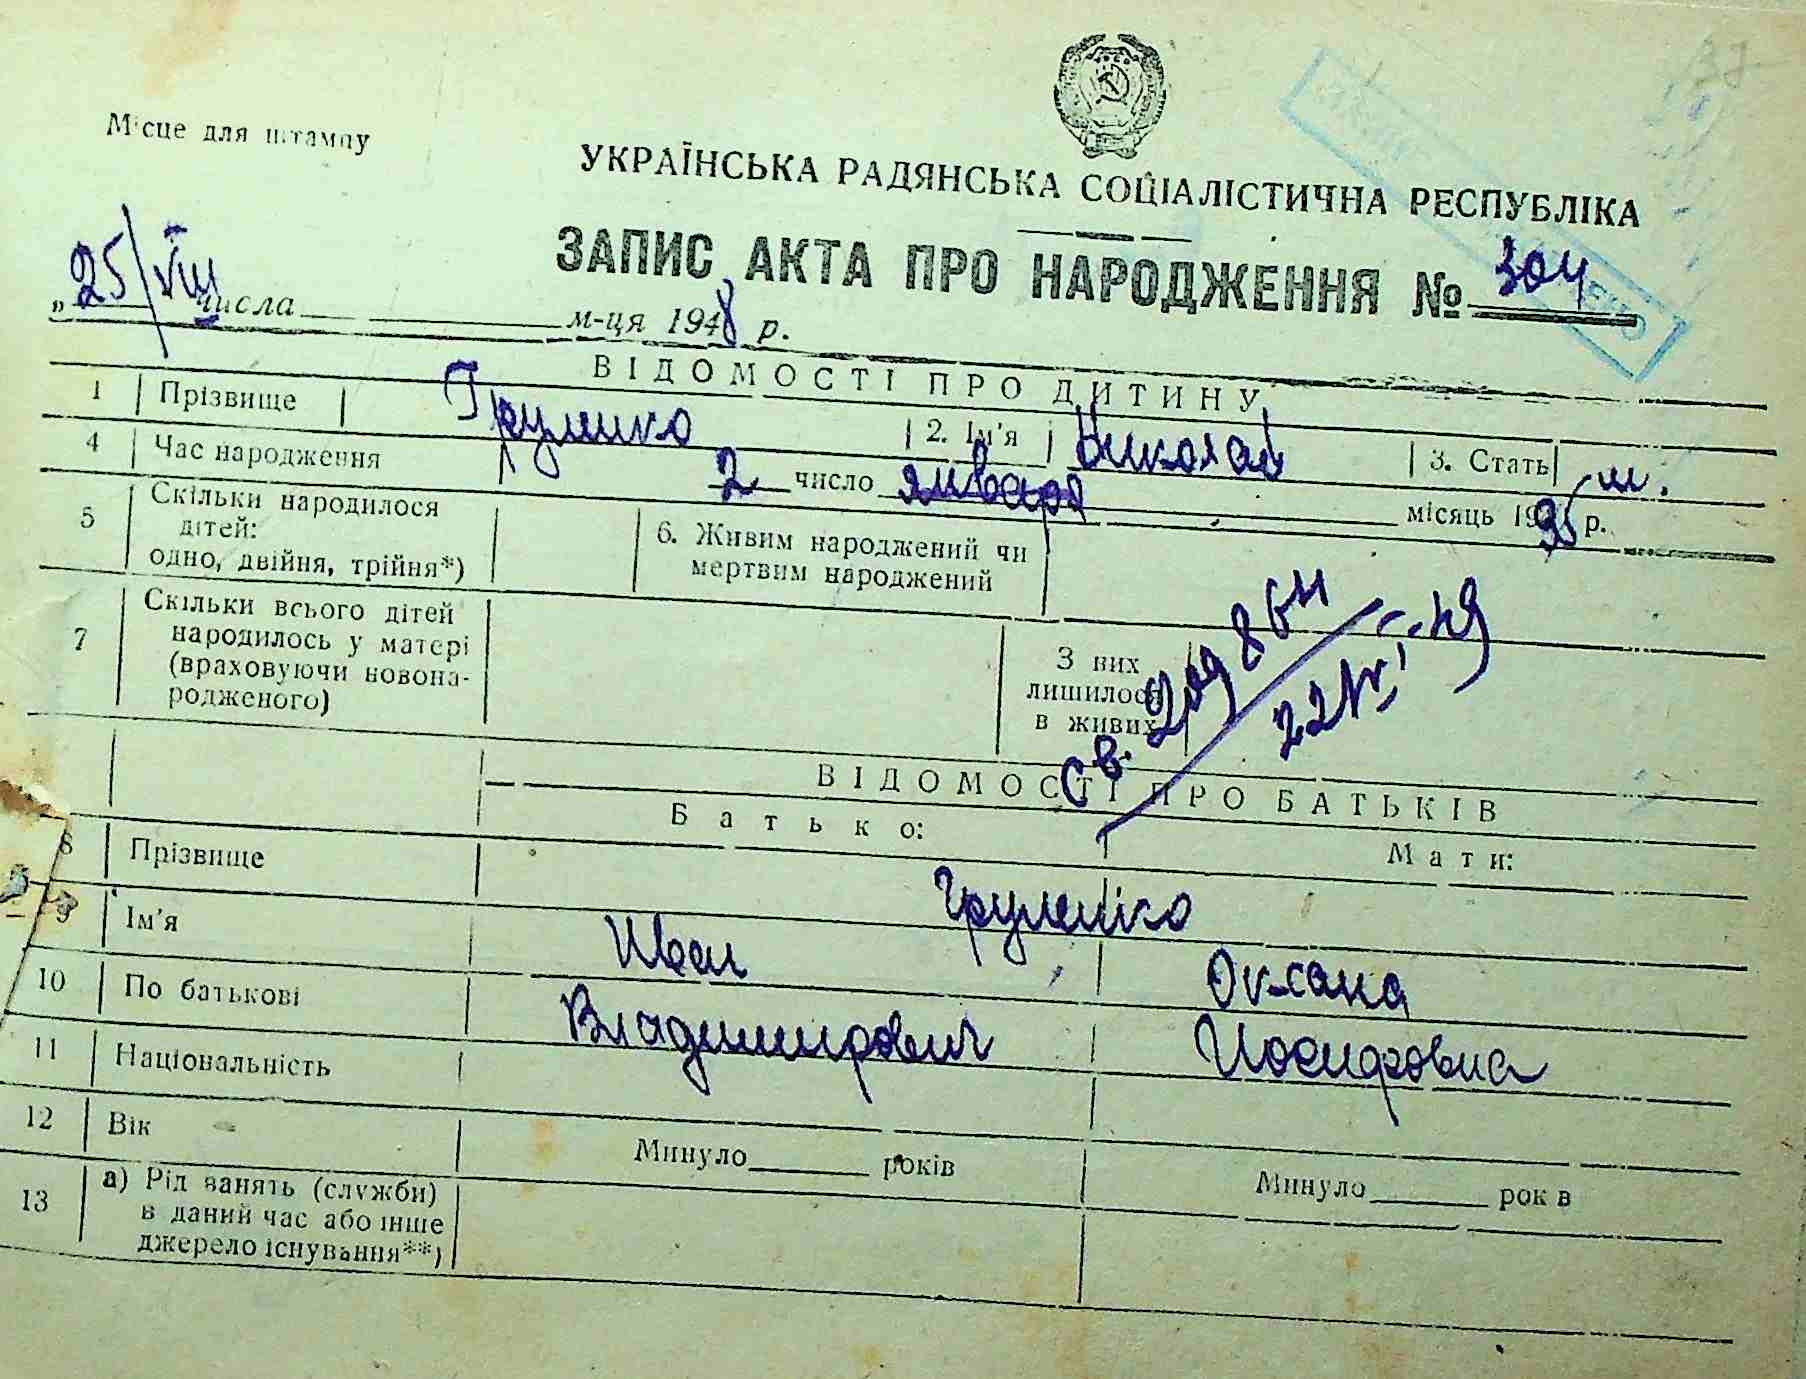 Місце для штампу
УКРАЇНСЬКА РАДЯНСЬКА СОЦІАЛІСТИЧНА РЕСПУБЛІКА
ЗАПИС АКТА ПРО НАРОДЖЕННЯ № 304
„ 25/VIII числа м-ця 1948 р.
ВІДОМОСТІ ПРО ДИТИНУ
1 Прізвище 2. Ім'я Николай 3. Стать м.
4 Час народження 2 число января місяць 19 р.
5 Скільки народилося
дітей:
одно, двійня, трійня*)
6. Живим народжений чи
мертвим народжений
7 Скільки всього дітей
народилось у матері
(враховуючи новона-
родженого)
З них
лишилось
в живих
ВІДОМОСТІ ПРО БАТЬКІВ
Батько: Мати:
8 Прізвище
9 Ім'я Иван Оксана
10 По батькові Владимирович Иосифовна
11 Національність
12 Вік Минуло років Минуло рок в
13 а) Рід занять (служби)
в даний час або інше
джерело існування**)